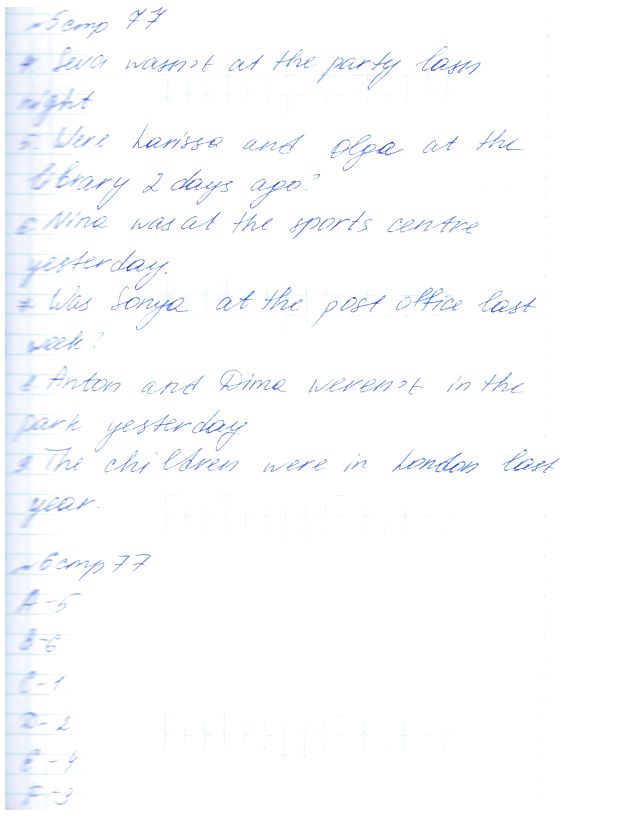 №5 стр 77
4. Seva wasn't at the party lasn
night
5. Were Larissa and Olga at the
library 2 days ago?
6. Nina was at the sports centre
yesterday.
7 Was Sonya at the post office last
week?
8 Anton and Dima weren't in the
park yesterday
9 The children were in London last
year.
№6 стр 77
A-5
B-6
C-1
D-2
E-4
F-3